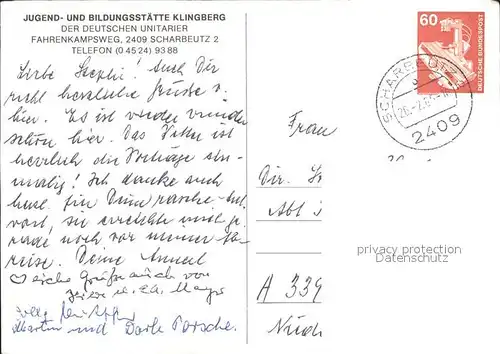 JUGEND- UND BILDUNGSSTÄTTE KLINGBERG
DER DEUTSCHEN UNITARIER
FAHRENKAMPSWEG, 2409 SCHARBEUTZ 2
TELEFON (0 45 24) 93 88
Liebe Steffi! Auch Dir
recht herzliche Grüsse v.
hier. Es ist wieder wunder
schön hier. Das Wetter ist
herrlich die Vorträge ein-
malig! Ich danke auch
für Deine rasche Ant-
wort, sie erreichte mich ge
rade noch vor meiner Ab-
reise. Deine Annel
Herzliche Grüße auch von
u.
Martin und Dorle Porsche.
Frau
Dir.
Abt
A 339
60
DEUTSCHE BUNDESPOST
SCHARBEUTZ
2409
privacy protection
Datenschutz